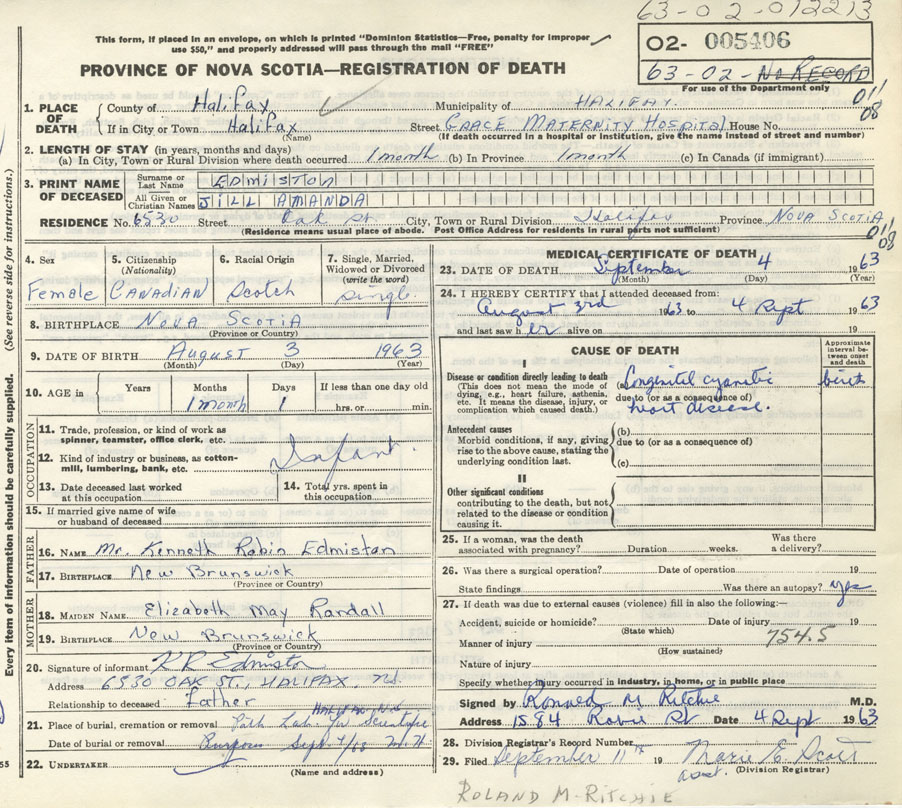 63-02-012213
This form, if placed in an envelope, on which is printed "Dominion Statistics—Free, penalty for improper
use $50," and properly addressed will pass through the mail "FREE"
02- 005406
63-02- No RECORD
For use of the Department only
PROVINCE OF NOVA SCOTIA—REGISTRATION OF DEATH
011
08
1. PLACE OF DEATH
County of Halifax Municipality of HALIFAX.
If in City or Town Halifax Street GRACE MATERNITY HOSPITAL House No.
(Name) (If death occurred in a hospital or institution, give the name instead of street and number)
2. LENGTH OF STAY (in years, months and days)
(a) In City, Town or Rural Division where death occurred 1 month (b) In Province 1 month (c) In Canada (if immigrant)
3. PRINT NAME OF DECEASED
Surname or Last Name EDMISTON
All Given or Christian Names JILL AMANDA
RESIDENCE No. 6530 Street Oak St. City, Town or Rural Division Halifax Province NOVA SCOTIA
(Residence means usual place of abode. Post Office Address for residents in rural parts not sufficient)
011
08
(See reverse side for instructions.)
Every item of information should be carefully supplied.
55
4. Sex
Female
5. Citizenship (Nationality)
CANADIAN
6. Racial Origin
Scotch
7. Single, Married, Widowed or Divorced (write the word)
single
8. BIRTHPLACE NOVA SCOTIA
(Province or Country)
9. DATE OF BIRTH August 3 1963
(Month) (Day) (Year)
10. AGE in Years Months Days If less than one day old
1 month 1 hrs. or min.
OCCUPATION
11. Trade, profession, or kind of work as spinner, teamster, office clerk, etc.
12. Kind of industry or business, as cotton-mill, lumbering, bank, etc. Infant.
13. Date deceased last worked at this occupation
14. Total yrs. spent in this occupation
15. If married give name of wife or husband of deceased
FATHER
16. NAME Mr. Kenneth Robin Edmiston
17. BIRTHPLACE New Brunswick
(Province or Country)
MOTHER
18. MAIDEN NAME Elizabeth May Randall
19. BIRTHPLACE New Brunswick
(Province or Country)
20. Signature of informant K R Edmiston
Address 6530 OAK ST., HALIFAX, N.S.
Relationship to deceased Father
21. Place of burial, cremation or removal Path Lab. for Scientific
Date of burial or removal Sept 4/63
22. UNDERTAKER
(Name and address)
MEDICAL CERTIFICATE OF DEATH
23. DATE OF DEATH September 4 1963
(Month) (Day) (Year)
24. I HEREBY CERTIFY that I attended deceased from:
August 3rd 1963 to 4 Sept 1963
and last saw her alive on 19
CAUSE OF DEATH
Approximate interval between onset and death
I
Disease or condition directly leading to death
(This does not mean the mode of dying, e.g., heart failure, asthenia, etc. It means the disease, injury, or complication which caused death.)
(a) Congenital cyanotic birth
due to (or as a consequence of)
heart disease.
Antecedent causes
Morbid conditions, if any, giving rise to the above cause, stating the underlying condition last.
(b)
due to (or as a consequence of)
(c)
II
Other significant conditions
contributing to the death, but not related to the disease or condition causing it.
25. If a woman, was the death associated with pregnancy? Duration weeks. Was there a delivery?
26. Was there a surgical operation? Date of operation 19
State findings Was there an autopsy? yes
27. If death was due to external causes (violence) fill in also the following:—
Accident, suicide or homicide? Date of injury 19
(State which)
Manner of injury 754.5
(How sustained)
Nature of injury
Specify whether injury occurred in industry, in home, or in public place
Signed by Ronald M Ritchie M.D.
Address 1584 Robie St Date 4 Sept 1963
28. Division Registrar's Record Number
29. Filed September 11th 19 Marie E. Scott
asst. (Division Registrar)
ROLAND M. RITCHIE